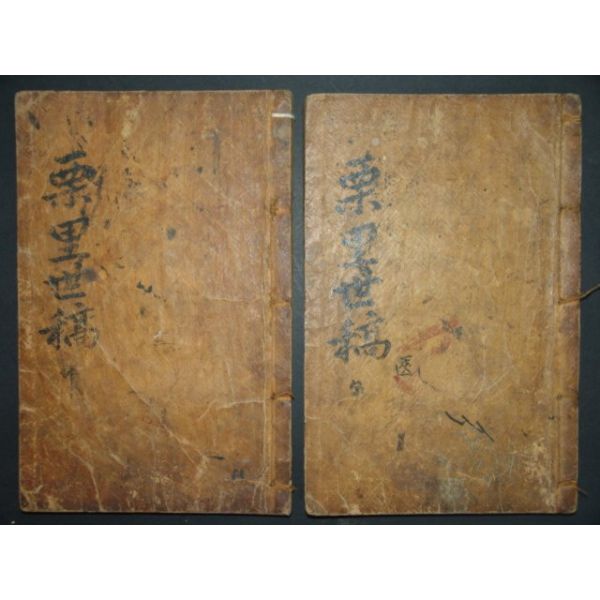 栗里世稿
栗里世稿